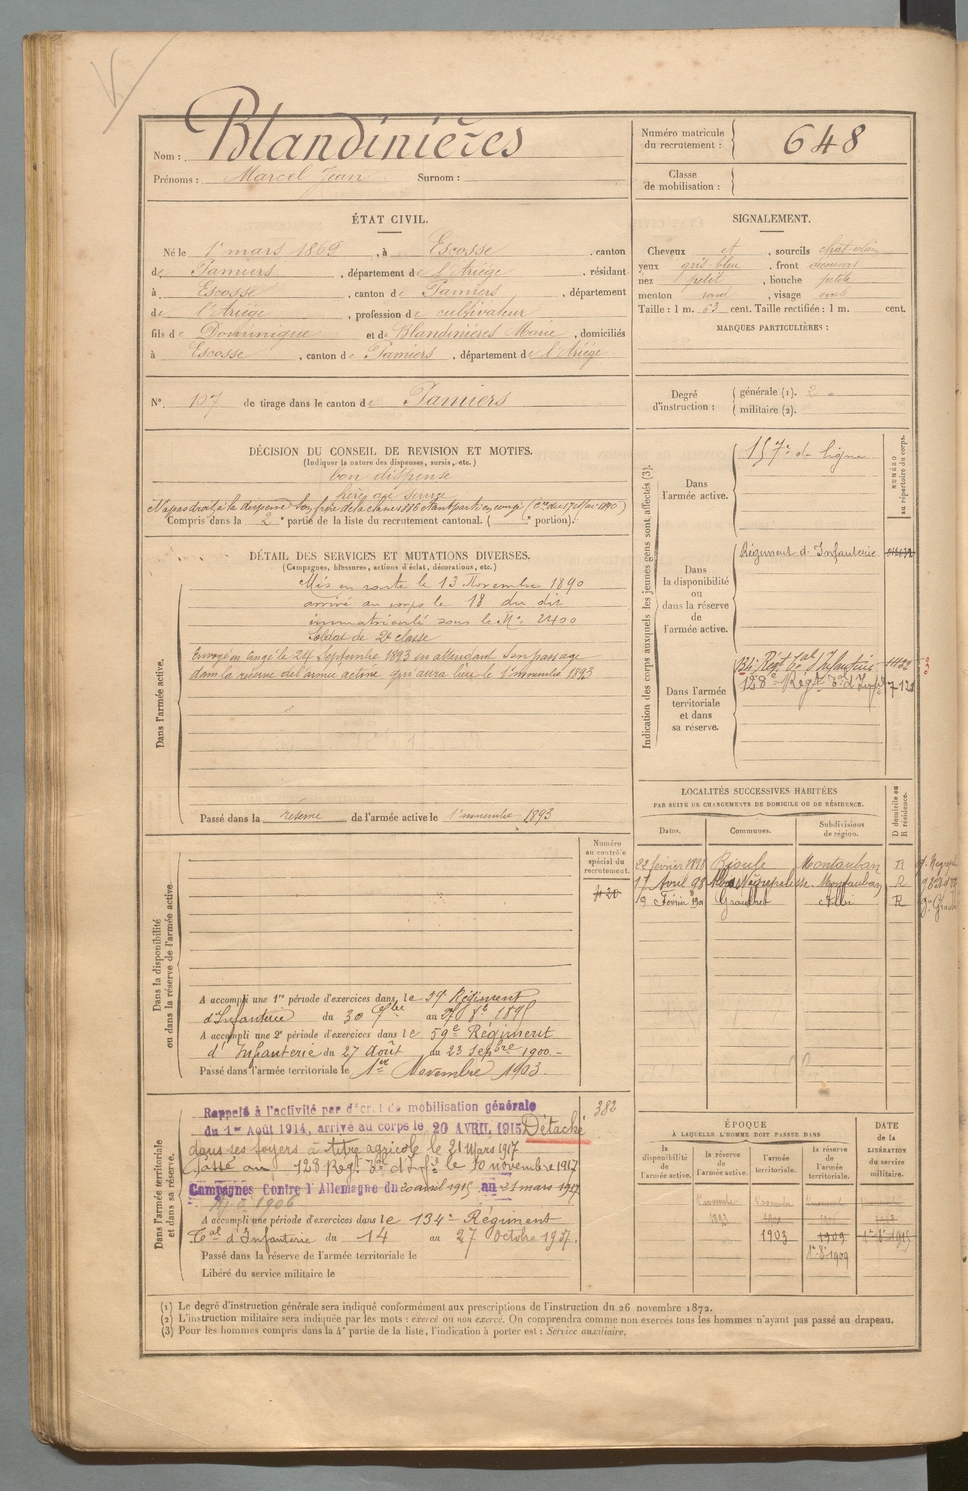 Nom : Blandinières
Prénoms : Marcel Jean Surnom :
Numéro matricule du recrutement : 648
Classe de mobilisation :
ÉTAT CIVIL.
Né le 1er mars 1869, à Escosse, canton
de Pamiers, département de l'Ariége, résidant
à Escosse, canton de Pamiers, département
de l'Ariége, profession de cultivateur
fils de Dominique et de Blandinières Marie, domiciliés
à Escosse, canton de Pamiers, département de l'Ariége
N°. 107 de tirage dans le canton de Pamiers
SIGNALEMENT.
Cheveux et, sourcils châtains
yeux gris-bleu, front découvert
nez petit, bouche petite
menton rond, visage ovale
Taille : 1 m. 63 cent. Taille rectifiée : 1 m. cent.
MARQUES PARTICULIÈRES :
Degré d'instruction : générale (1). 2
militaire (2).
DÉCISION DU CONSEIL DE REVISION ET MOTIFS.
(Indiquer la nature des dispenses, sursis, etc.)
bon dispensé
frère au service
N'a pas droit à la dispense son frère de la classe 1886 étant parti en congé (Cre du 17 Mai 1890)
Compris dans la 2e partie de la liste du recrutement cantonal. ( e portion).
DÉTAIL DES SERVICES ET MUTATIONS DIVERSES.
(Campagnes, blessures, actions d'éclat, décorations, etc.)
Dans l'armée active.
Mis en route le 13 Novembre 1890
arrivé au corps le 18 du dit
immatriculé sous le No. 2400
Soldat de 2e classe
Envoyé en congé le 24 Septembre 1893 en attendant son passage
dans la réserve de l'armée active qui aura lieu le 1er novembre 1893
Passé dans la réserve de l'armée active le 1er novembre 1893
Indication des corps auxquels les jeunes gens sont affectés (3).
NUMÉRO au répertoire du corps.
Dans l'armée active. 157e de ligne
Dans la disponibilité ou dans la réserve de l'armée active. Régiment d'Infanterie
Dans l'armée territoriale et dans sa réserve. 134e Régt tal d'Infanterie
128e Régt Tal d'Infie 7121
LOCALITÉS SUCCESSIVES HABITÉES
PAR SUITE DE CHANGEMENTS DE DOMICILE OU DE RÉSIDENCE.
Dates. Communes. Subdivisions de région. D domicile ou R résidence.
22 février 1898 Bioule Montauban R
17 Avril 98 Nègrepelisse Montauban R
9 Février 1901 Graulhet Albi R
Dans la disponibilité ou dans la réserve de l'armée active
Numéro au contrôle spécial du recrutement.
A accompli une 1re période d'exercices dans le Régiment
d'Infanterie du 30
A accompli une 2e période d'exercices dans le 59e Régiment
d'Infanterie du 27 Août au 23 Sepbre 1900
Passé dans l'armée territoriale le 1er Novembre 1903
Dans l'armée territoriale et dans sa réserve.
382
Rappelé à l'activité par décret de mobilisation générale
du 1er Août 1914, arrivé au corps le 20 AVRIL 1915. Détaché
dans ses foyers à titre agricole le 21 Mars 1917
Passé au 128 Régt Tal d'Infie le 10 novembre 1917
Campagnes Contre l'Allemagne du 20 avril 1915 au 21 mars 1917
A accompli une période d'exercices dans le 134e Régiment
Tal d'Infanterie du 14 au 27 Octobre 1907.
Passé dans la réserve de l'armée territoriale le
Libéré du service militaire le
ÉPOQUE
À LAQUELLE L'HOMME DOIT PASSER DANS
la disponibilité de l'armée active. la réserve de l'armée active. l'armée territoriale. la réserve de l'armée territoriale.
DATE de la LIBÉRATION du service militaire.
1903 1909
1er 8bre 1909
(1) Le degré d'instruction générale sera indiqué conformément aux prescriptions de l'instruction du 26 novembre 1872.
(2) L'instruction militaire sera indiquée par les mots : exercé ou non exercé. On comprendra comme non exercés tous les hommes n'ayant pas passé au drapeau.
(3) Pour les hommes compris dans la 4e partie de la liste, l'indication à porter est : Service auxiliaire.